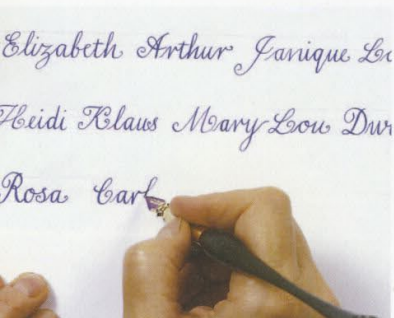 Elizabeth Arthur Janique
Heidi Klaus Mary Lou
Rosa Carl